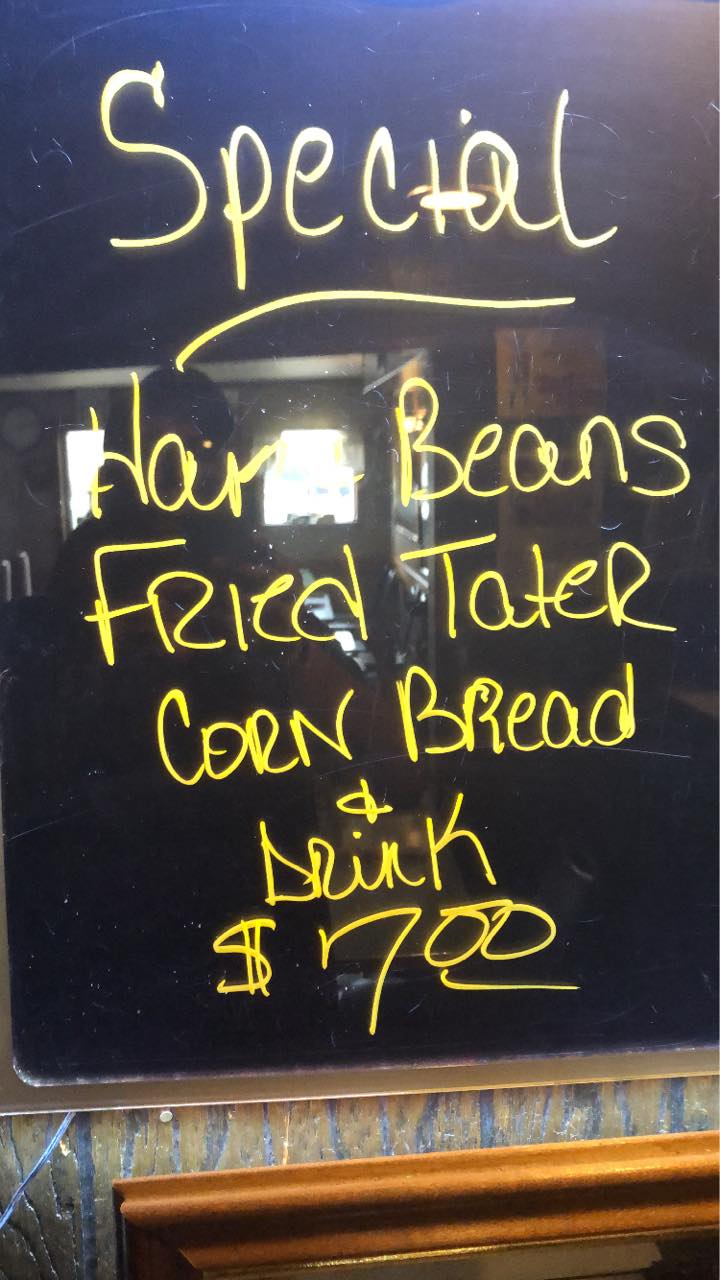 Special
Ham & Beans
Fried Tater
Corn Bread
&
Drink
$ 7.00